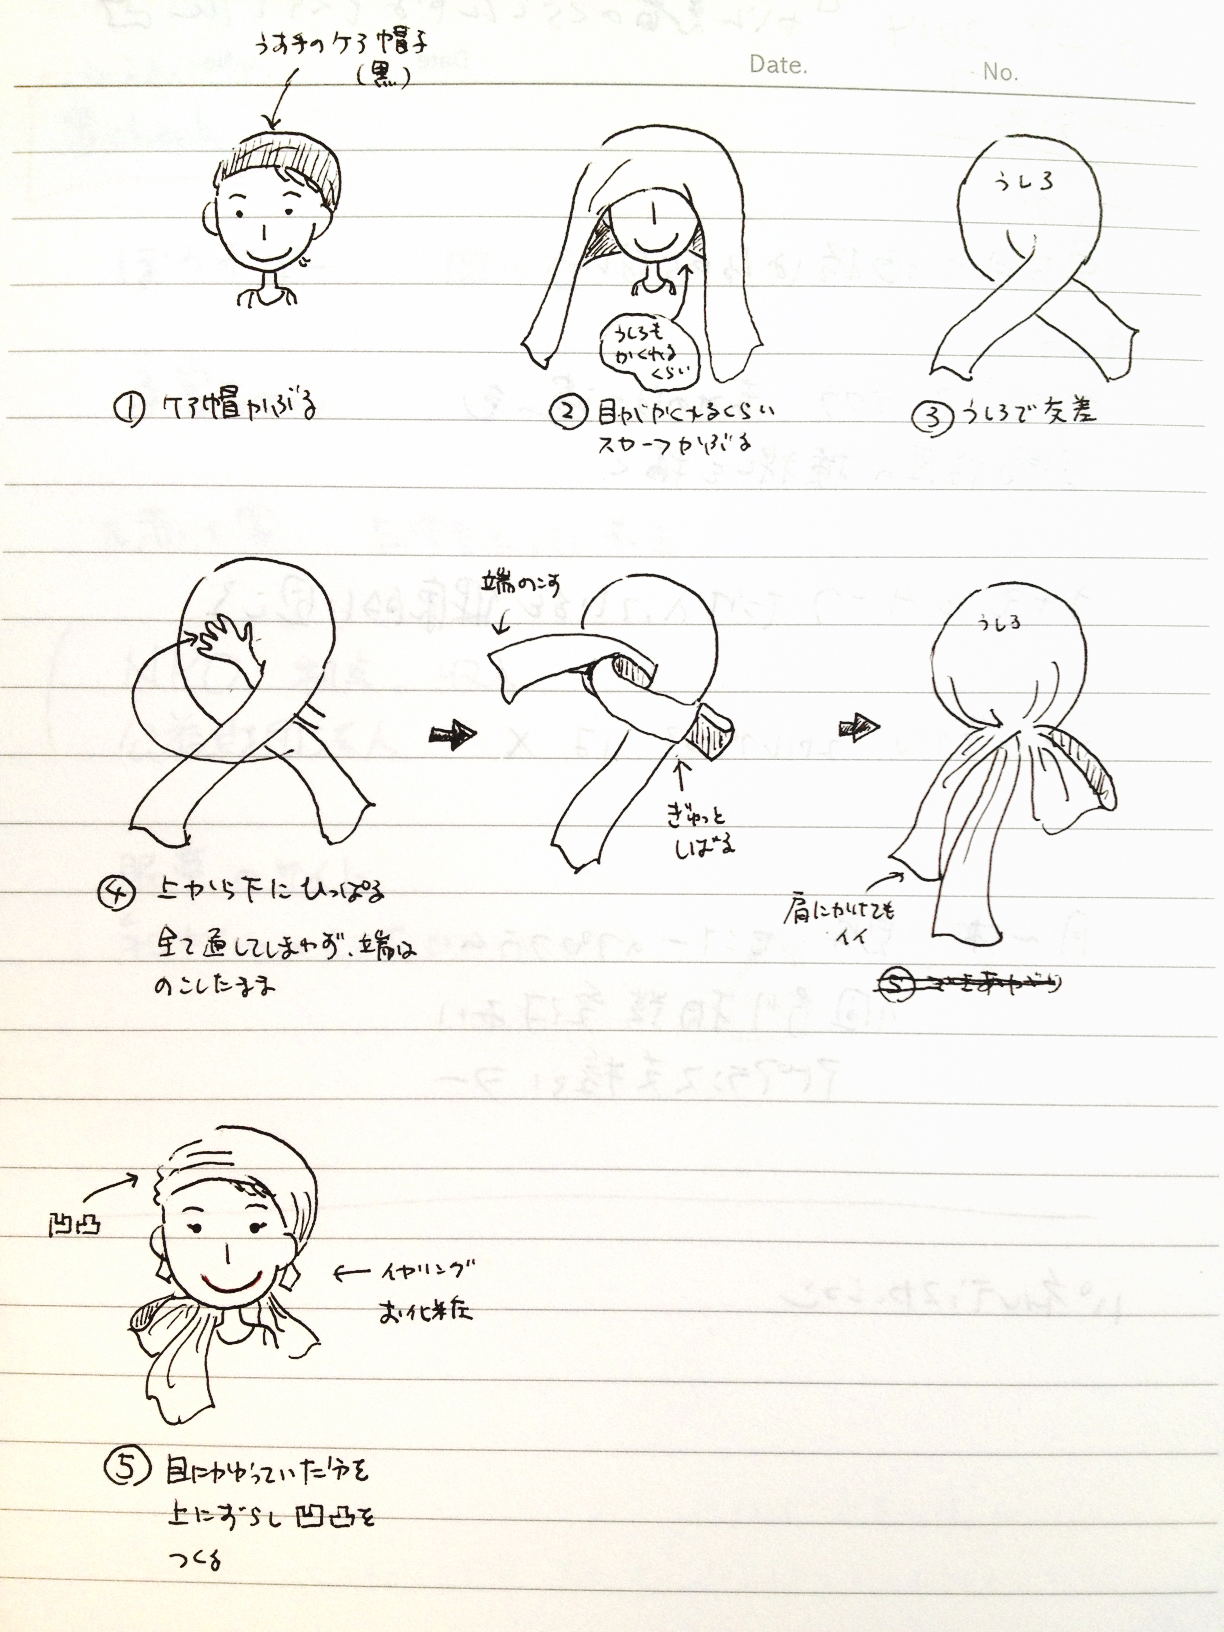 うす手のケア帽子
(黒)
Date.
No.
うしろ
うしろも
かくれる
くらい
① ケア帽かぶる
② 目がかくれるくらい
スカーフかぶる
③ うしろで交差
端のこす
うしろ
ぎゅっと
しばる
肩にかけても
イイ
④ 上から下にひっぱる
全て通してしまわず、端は
のこしたまま
⑤ できあがり
凹凸
イヤリング
お化粧
⑤ 目にかかっていた分を
上にずらし凹凸を
つくる